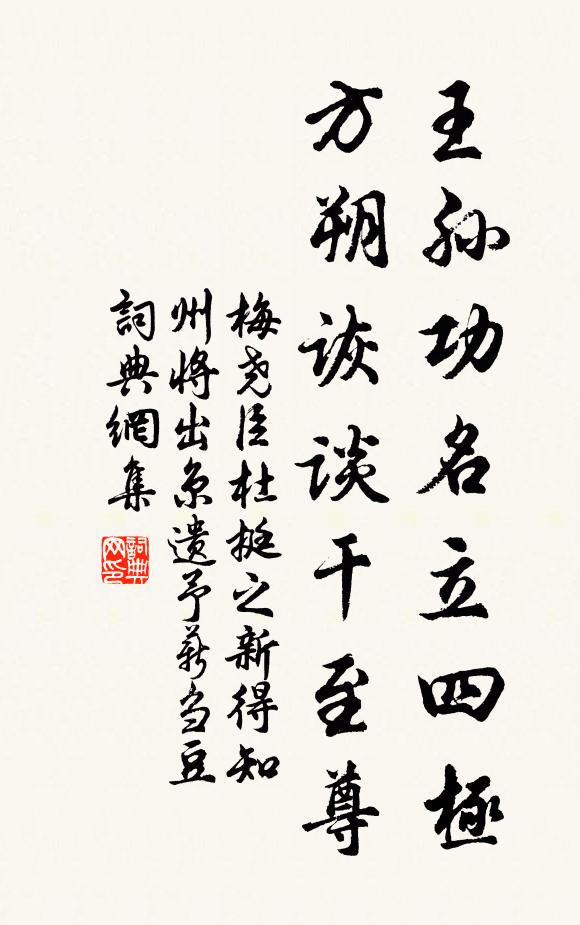 王孙功名立四極
方朔诙談干至尊
梅尧臣杜挺之新得知
州将出京遗予薪刍豆
詞典網集
詞典
网印